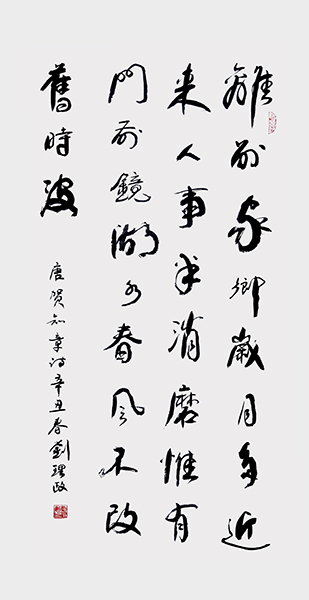 離別家鄉歲月多近
来人事半消磨惟有
門前鏡湖水春风不改
舊時波
唐贺知章诗辛丑春劉理政